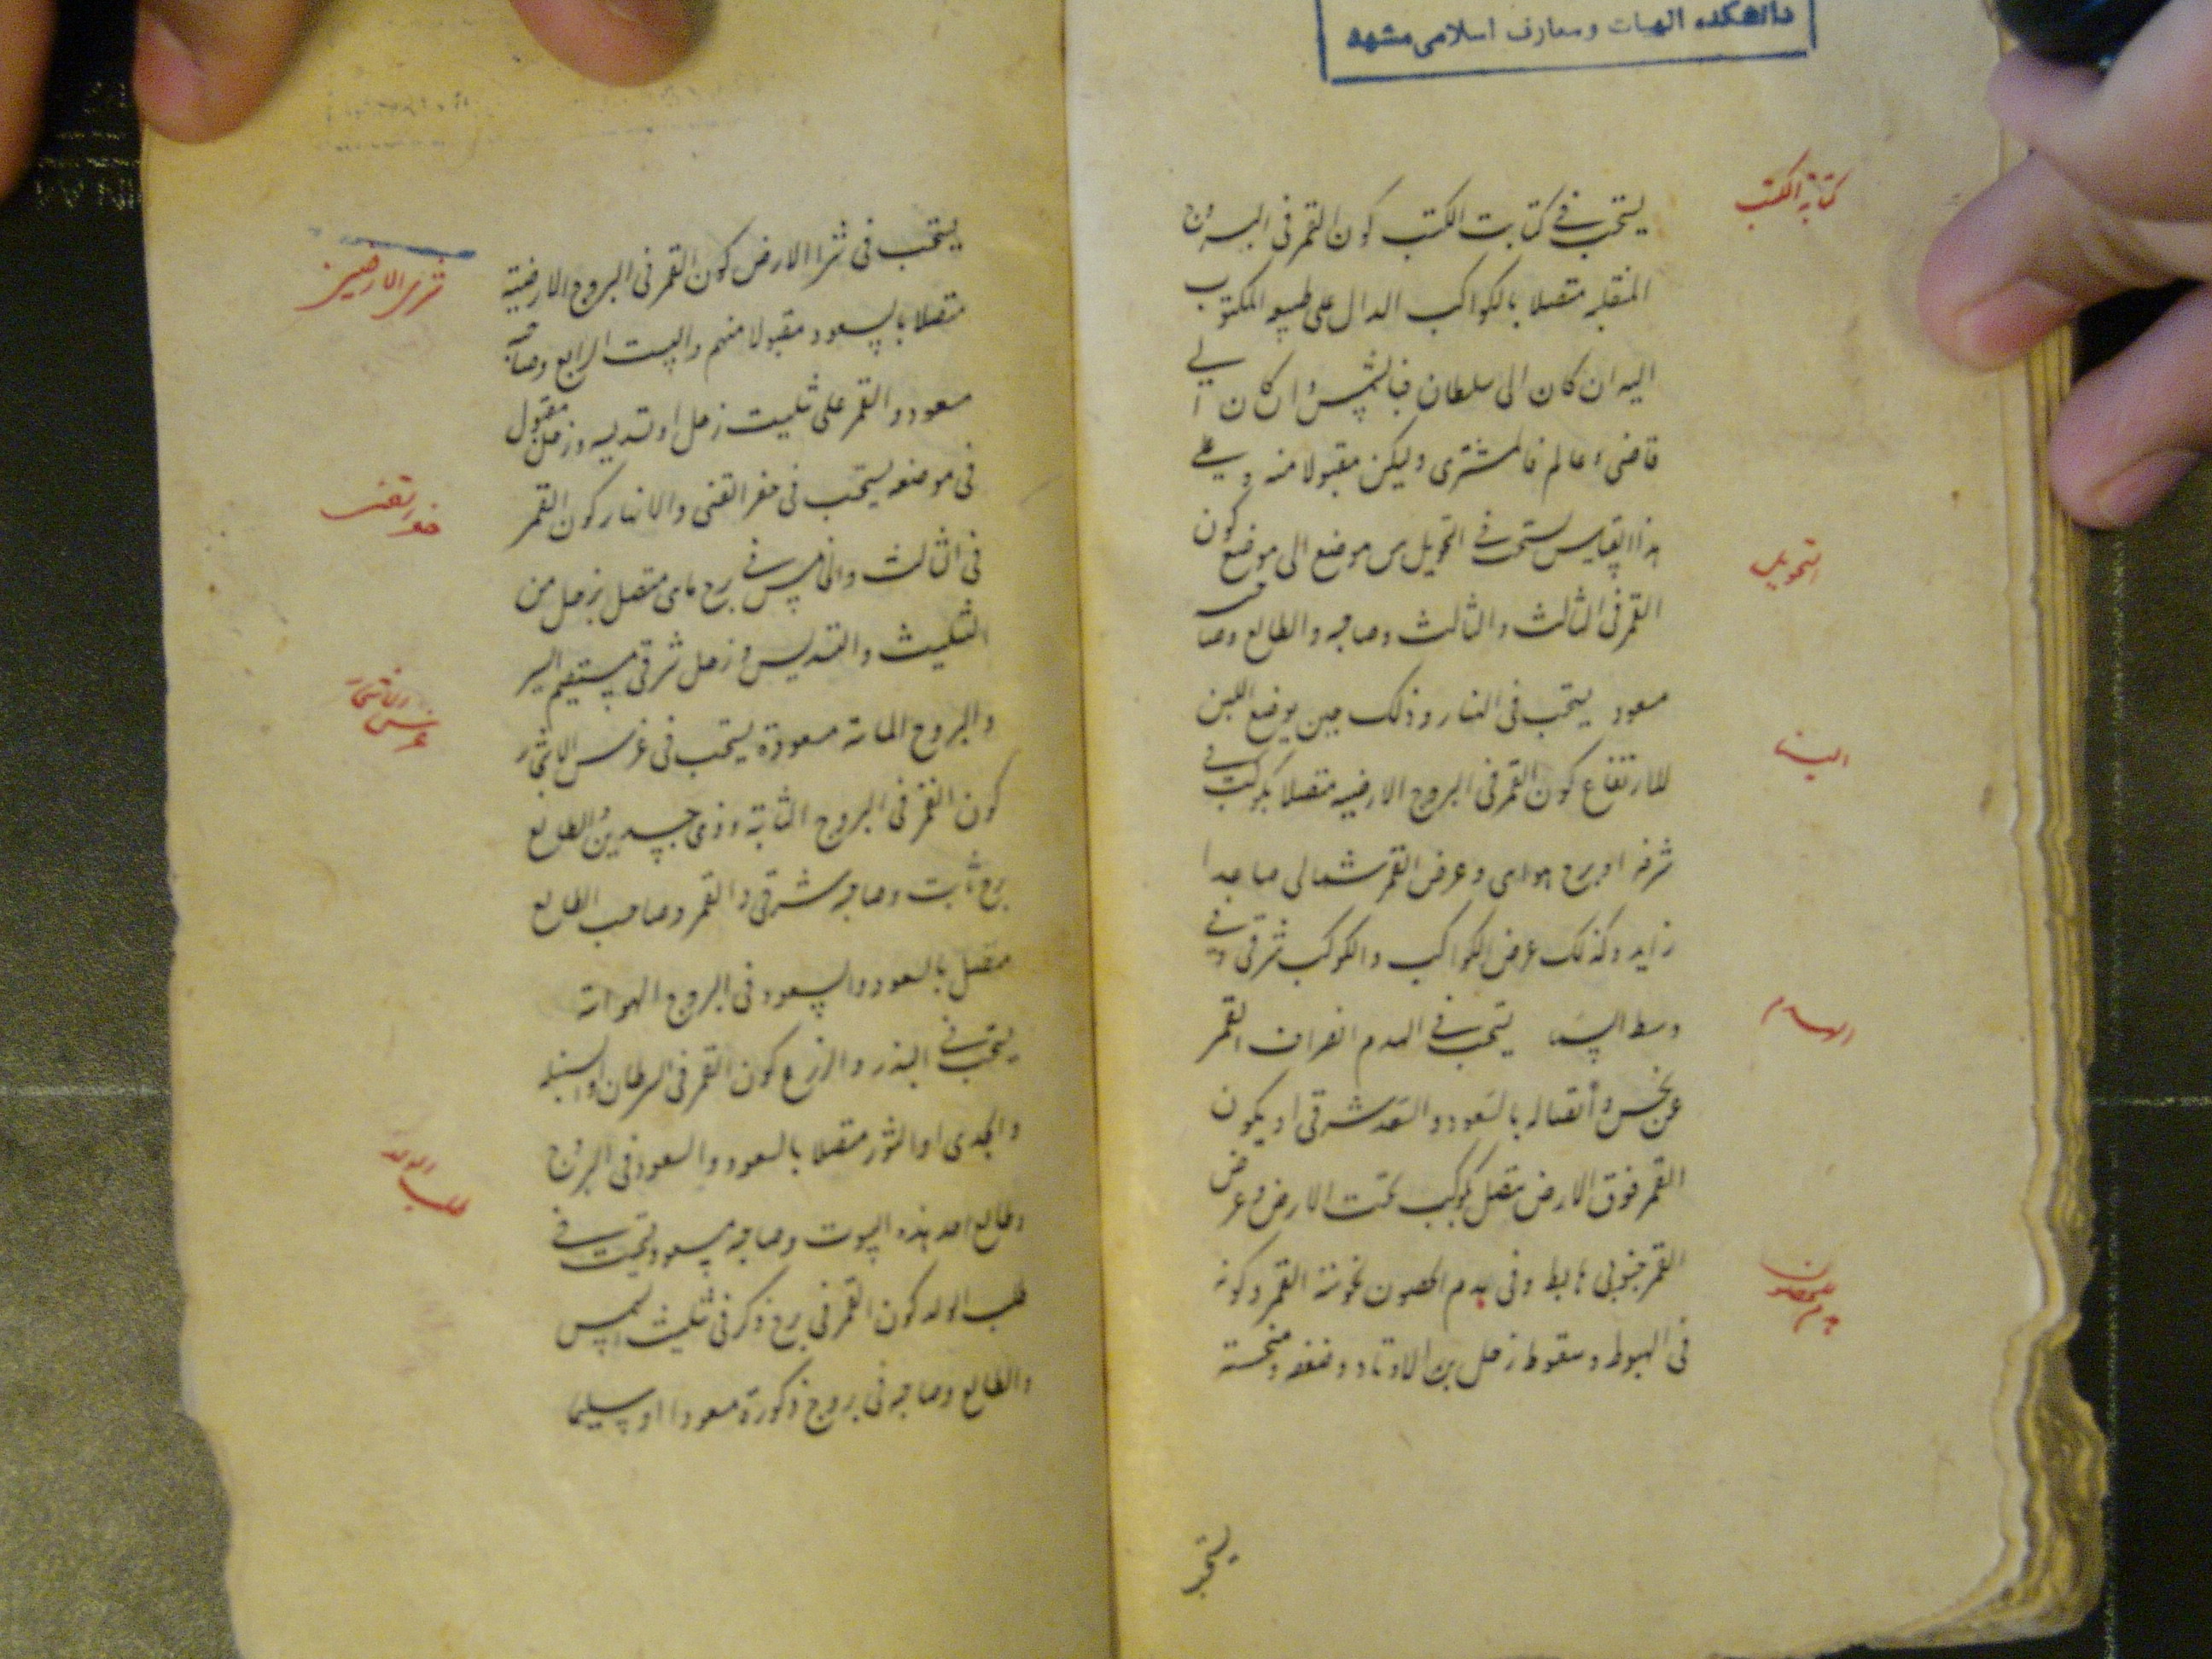 دانشکده الهیات و معارف اسلامی مشهد
کتابة الکتب
یستحب فی کتابت الکتب کون القمر فی البروج
المنقلبه متصلا بالکواکب الدال علی طبیعه المکتوب
الیه ان کان الی سلطان فبالشمس وان کان الی
قاضی و عالم فالمشتری ولیکن مقبولا منه و علی
التحویل
هذا القیاس یستحب فی التحویل من موضع الی موضع کون
القمر فی الثالث والثالث وصاحبه والطالع وصاحبه
البناء
مسعود یستحب فی البناء وذلک حین یوضع اللبن
للارتفاع کون القمر فی البروج الارضیه متصلا بکوکب فی
شرفه او برج هوایی وعرض القمر شمالی صاعدا
زاید وکذلک عرض الکواکب والکوکب شرقی فی
الهدم
وسط السما یستحب فی الهدم انصراف القمر
عن نحس واتصاله بالسعود والسعد شرقی او یکون
القمر فوق الارض متصل بکوکب تحت الارض وعرض
هدم الحصون
القمر جنوبی هابط وفی هدم الحصون نحوسة القمر وکونه
فی الهبوط وسقوط زحل من الاوتاد وضعفه ومنحسته
یستحب
شری الارضین
یستحب فی شرا الارض کون القمر فی البروج الارضیة
متصلا بالسعود مقبولا منهم والبیت الرابع وصاحبه
مسعود والقمر علی تثلیث زحل او تسدیسه وزحل مقبول
حفر القنی
فی موضعه یستحب فی حفر القنی والانهار کون القمر
فی الثالث والخامس فی برج مای متصل بزحل من
التثلیث والتسدیس وزحل شرقی مستقیم السیر
غرس الاشجار
والبروج المائة مسعودة یستحب فی غرس الاشجار
کون القمر فی البروج الثابتة وذی جسدین والطالع
برج ثابت وصاحبه شرقی والقمر وصاحب الطالع
متصل بالسعود والسعود فی البروج الهوائة
یستحب فی البذر والزرع کون القمر فی السرطان او السنبلة
والجدی او الثور متصلا بالسعود والسعود فی البروج
طلب الولد
وطالع احد هذه البیوت وصاحبه مسعود یستحب فی
طلب الولد کون القمر فی برج ذکر فی تثلیث الشمس
والطالع وصاحبه فی بروج ذکورة مسعودا او سلیما